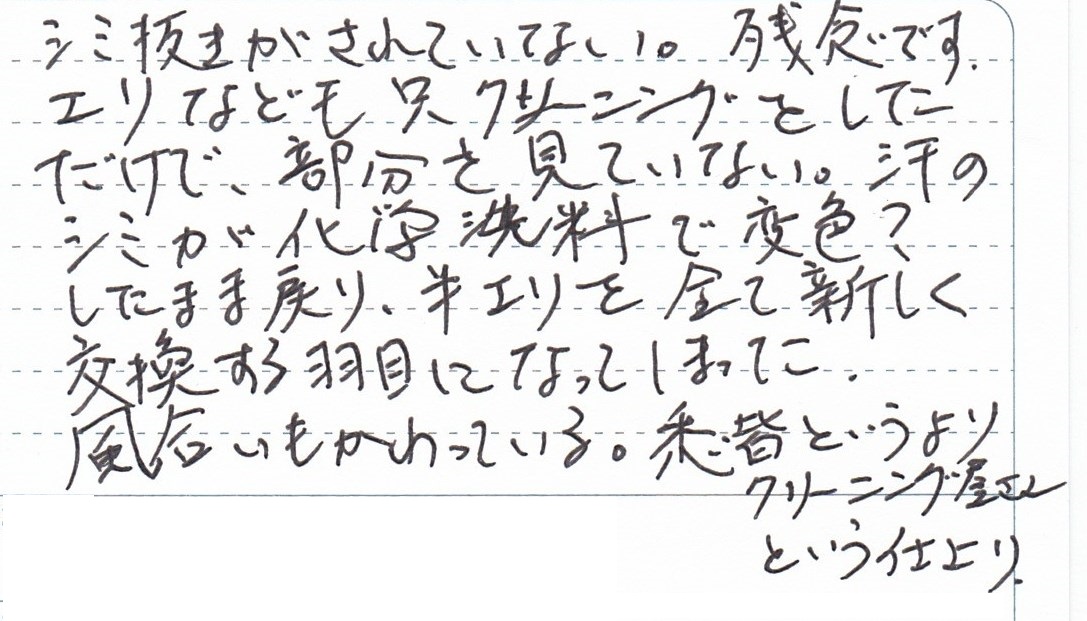 シミ抜きがされていない。残念です.
エリなども只クリーニングをした
だけで、部分を見ていない。汗の
シミが化学洗料で変色?
したまま戻り、半エリを全て新しく
交換する羽目になってしまってこ.
風合いもかわっている。悉皆というより
クリーニング屋さん
という仕上り.